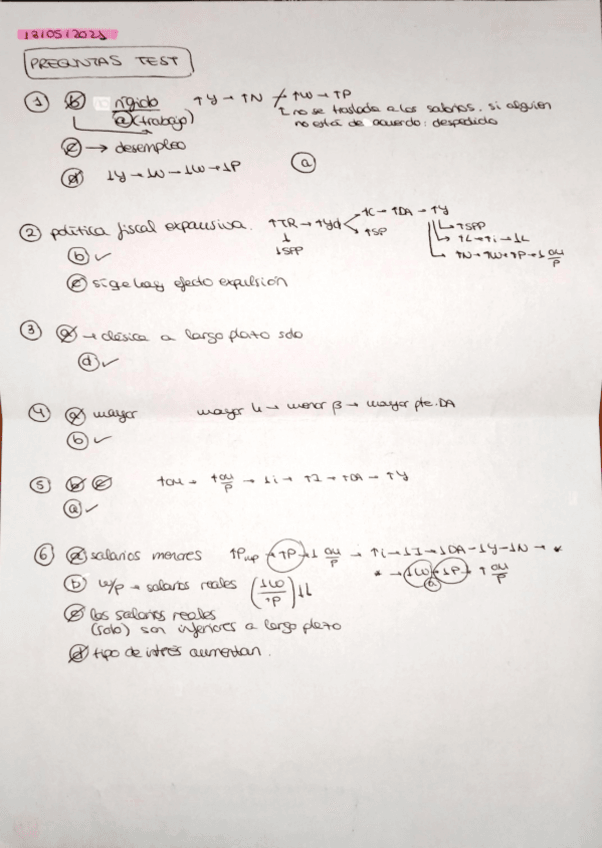 18/05/2021
PREGUNTAS TEST
① b rígido ↑Y → ↑N ↛ ↑W → ↑P
a (trabajo) ↑ no se traslada a los salarios. si alguien
no está de acuerdo: despedido
c → desempleo
d ↓Y → ↓N → ↓W → ↓P a
② política fiscal expansiva. ↑TR → ↑Yd ↑C → ↑DA → ↑Y
↓SPP ↑SP ↑SPP
b ✓ ↑L → ↑i → ↓L
↑N → ↑W → ↑P → ↓ OM/P
c sigue hay efecto expulsión
③ a → clásica a largo plazo solo
d ✓
④ a mayor mayor h → menor β → mayor pte. DA
b ✓
⑤ b c ↑OM → ↑ OM/P → ↓i → ↑I → ↑DA → ↑Y
a ✓
⑥ a salarios menores ↑Pimp → ↑P → ↓ OM/P → ↑i → ↓I → ↓DA → ↓Y → ↓N → *
b W/P → salarios reales (↓W/↑P) ↓↓ * → ↓W → ↓P → ↑ OM/P
c los salarios reales
(solo) son inferiores a largo plazo
d tipo de interés aumentan.